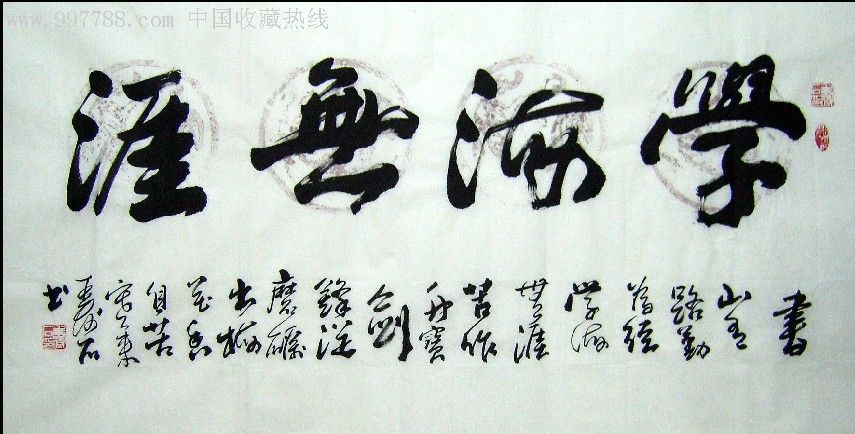 www.997788.com 中国收藏热线
學海無涯
書
山有
路勤
為徑
学海
無涯
苦作
舟寳
劍
鋒從
磨礪
出梅
花香
自苦
寒来
石
书